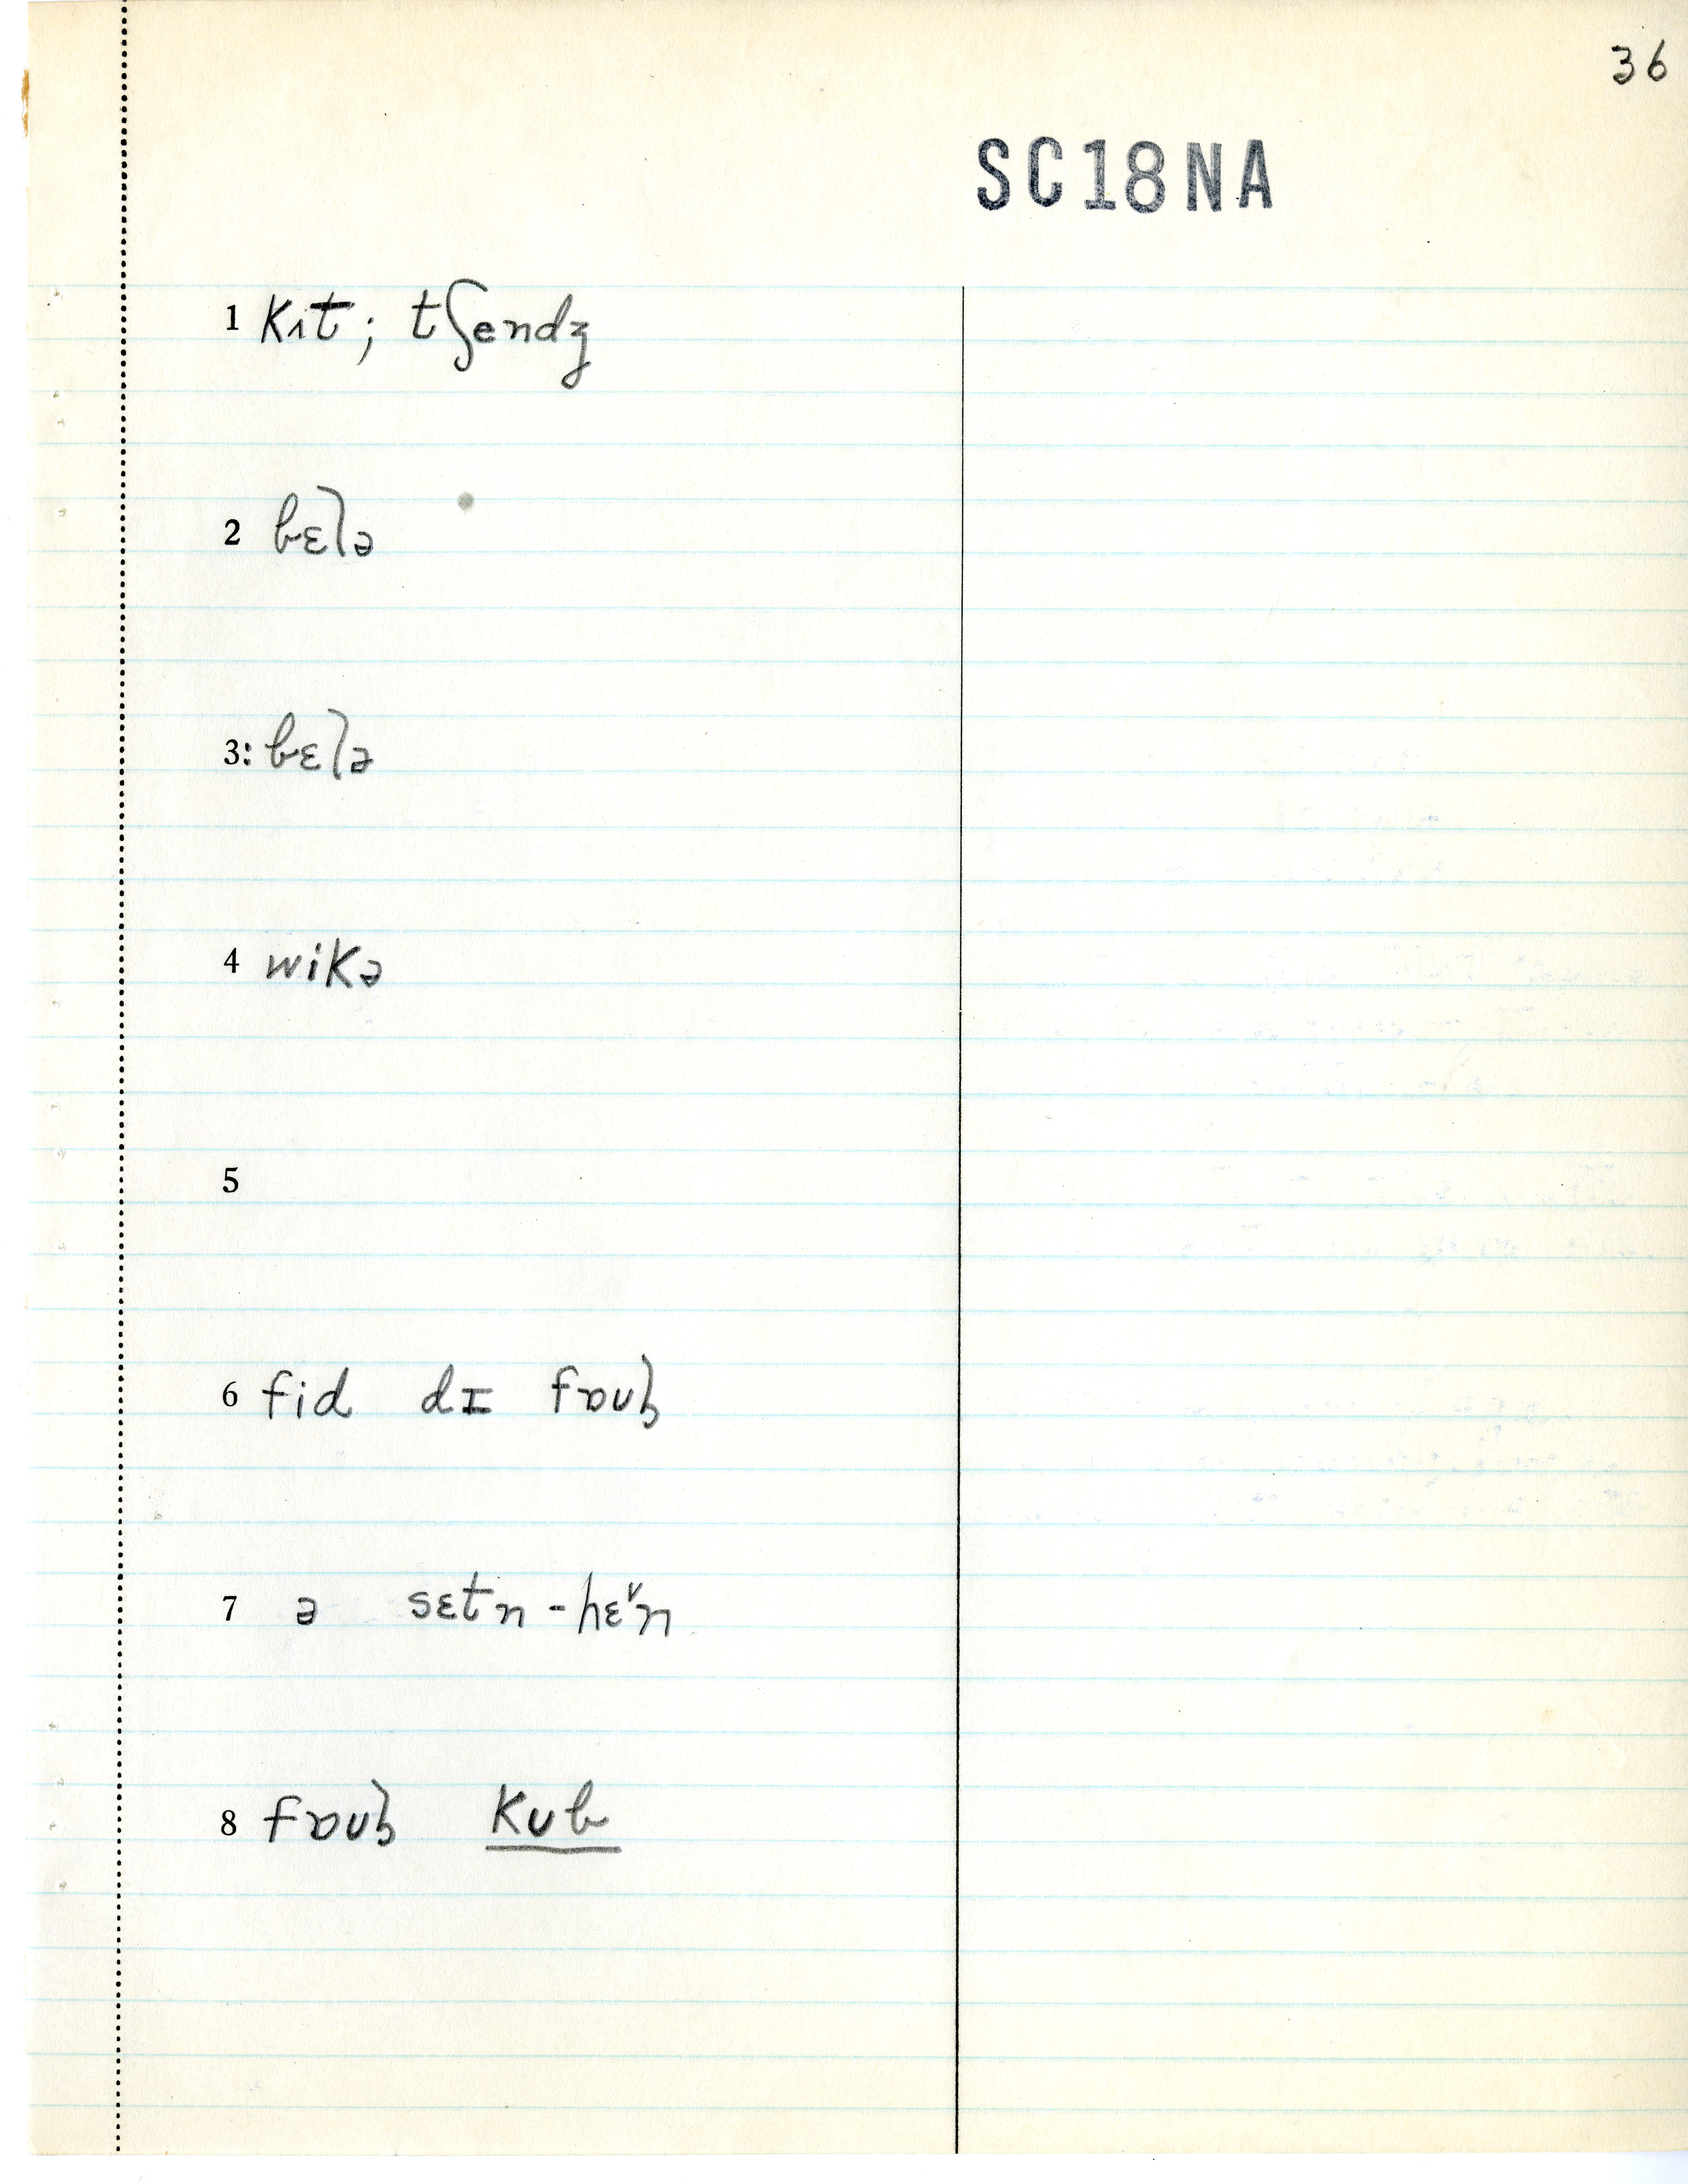 36
SC18NA
1 kɪt; tʃendʒ
2 bɛlə
3: bɛlə
4 wikə
5
6 fid dɪ fɒuɮ
7 ə sɛtn-hɛˇn
8 fɒuɮ kub